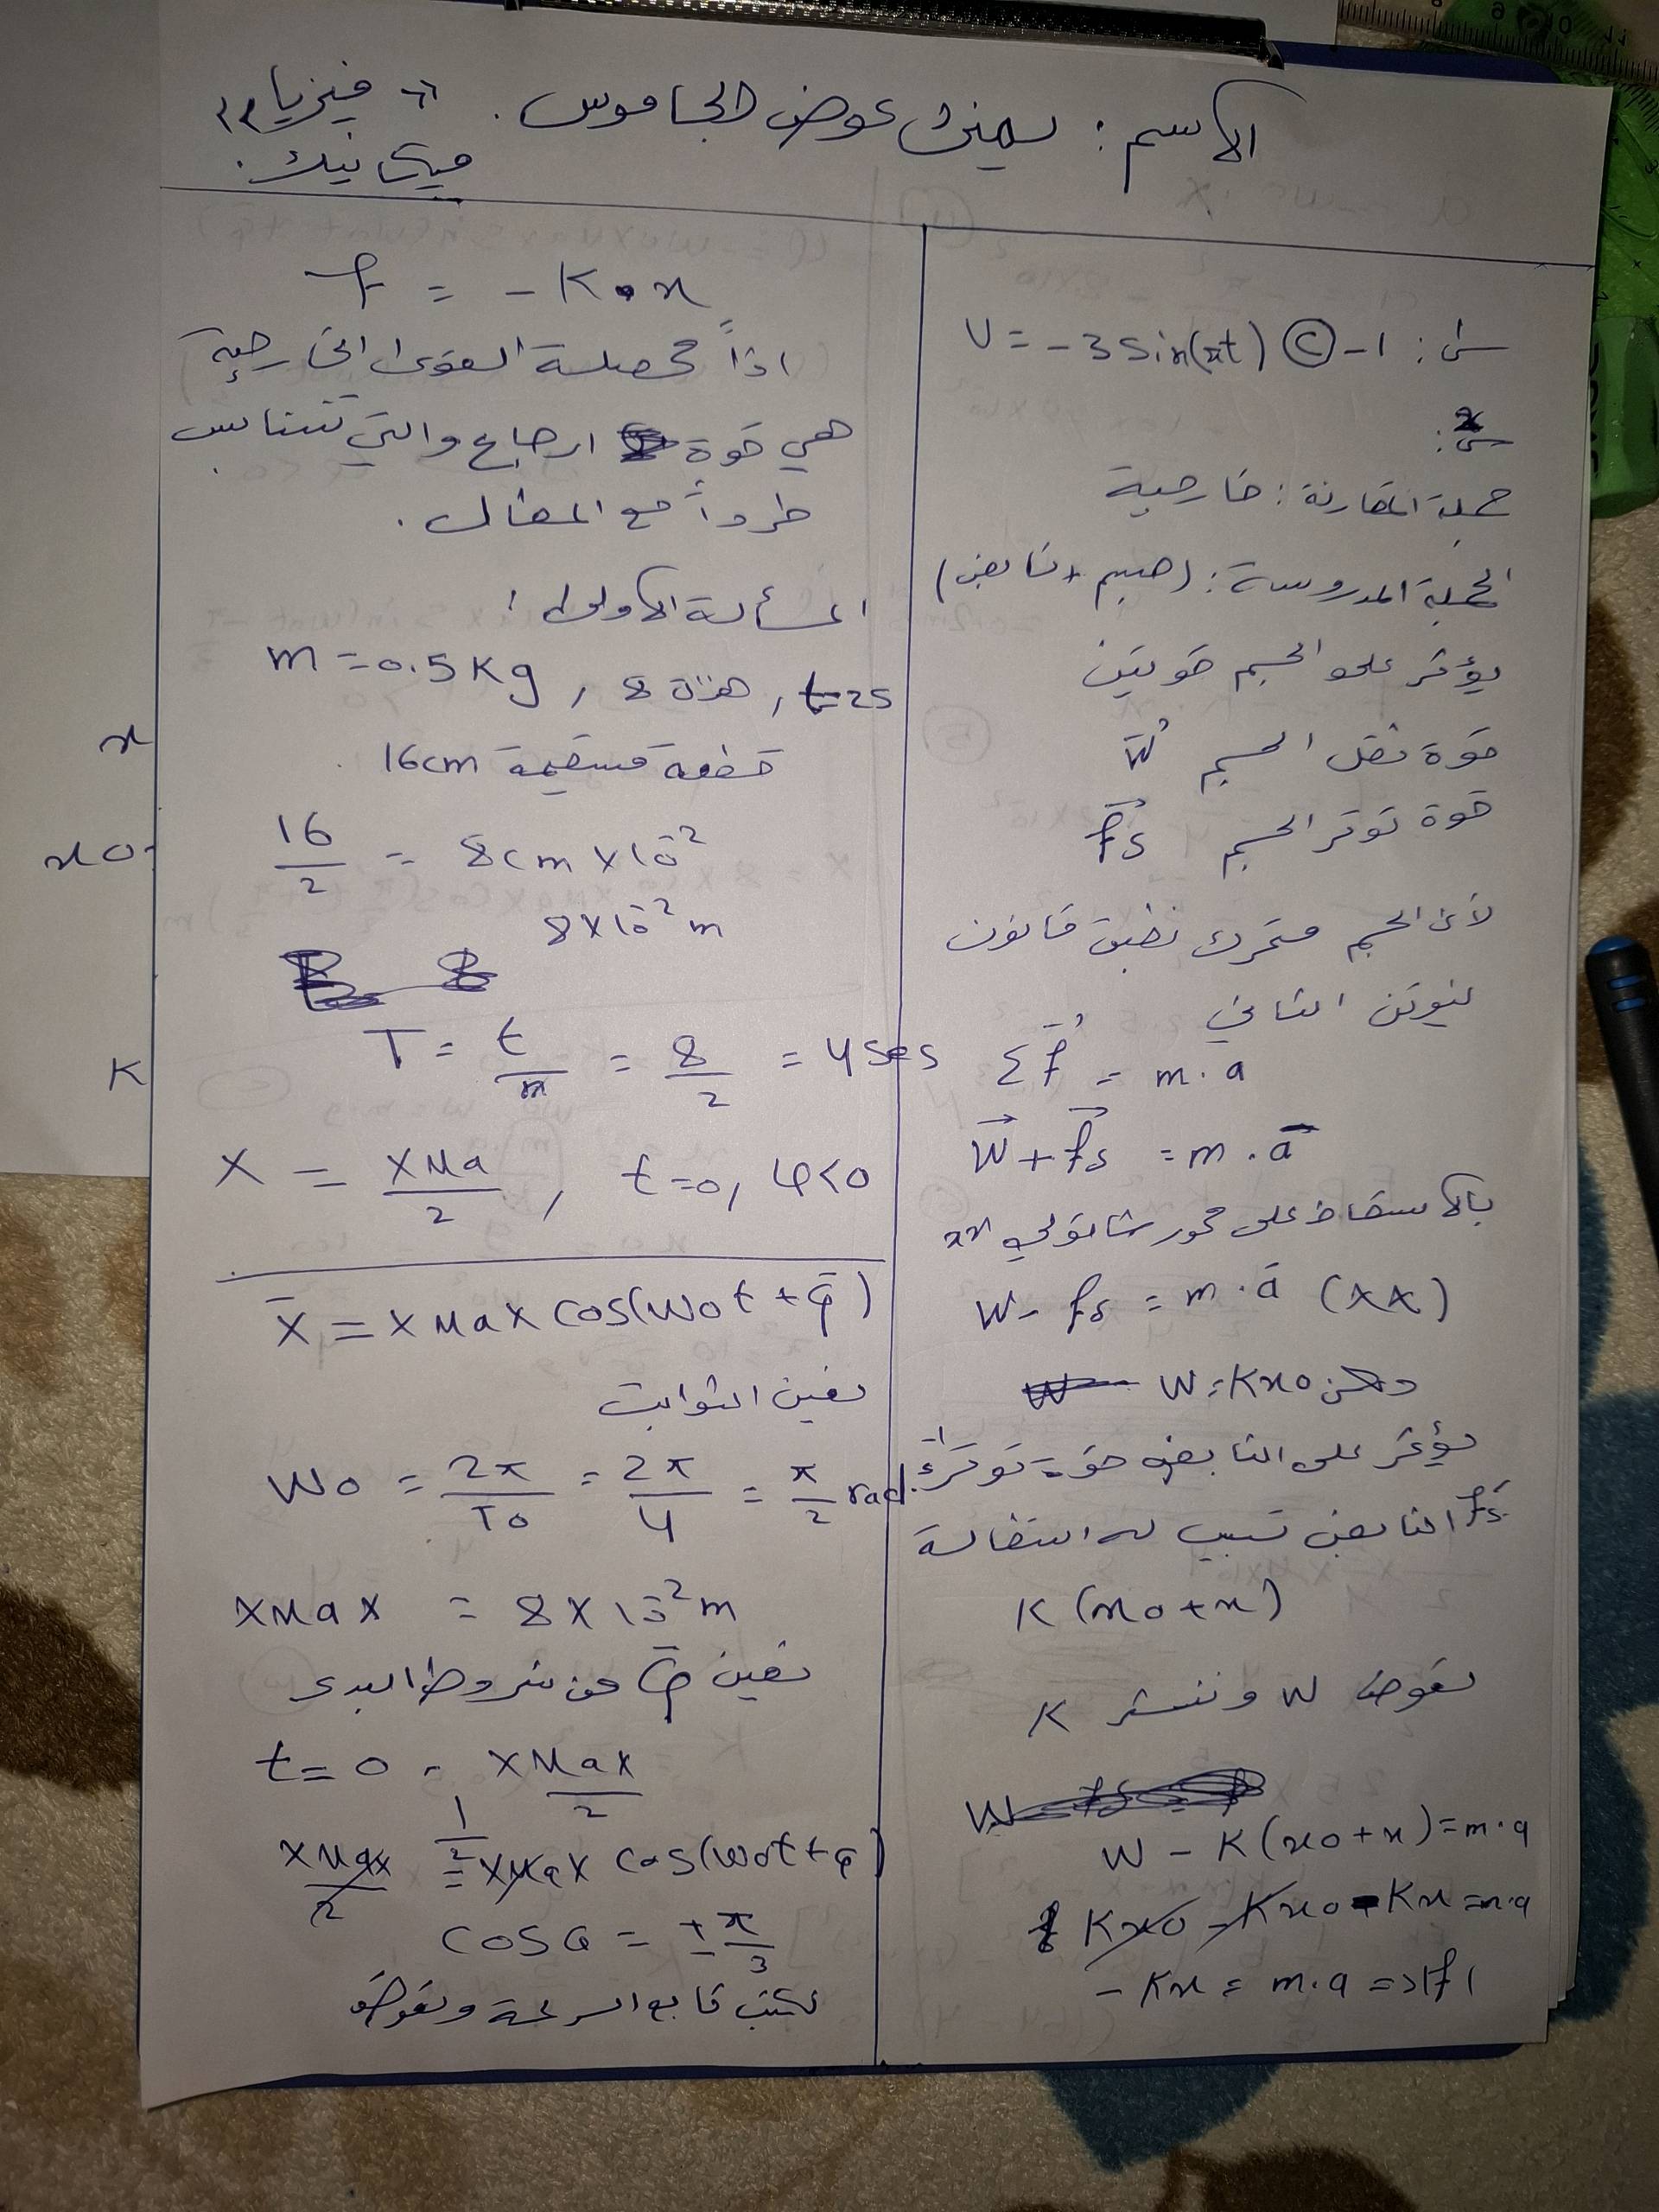 الاسم : يمنى عوض الجاموس . " فيزياء "
ميكانيك .
س : 1- Ⓒ V = -3 sin(πt)
س2 :
جملة المقارنة : خارجية
الجملة المدروسة : (جسم + نابض)
يؤثر على الجسم قوتين
قوة ثقل الجسم W
قوة توتر الجسم Fs
لأن الجسم متحرك نطبق قانون
نيوتن الثاني
ΣF = m . a
W + Fs = m . a
بالاسقاط على محور شاقولي xx
W - Fs = m . a (xx)
ولكن W = Kx0
يؤثر على النابض قوة توتر
النابض تسبب له استطالة Fs
K (x0 + x)
نعوض W وننشر K
W - K(x0 + x) = m . a
Kx0 - Kx0 - Kx = m . a
- Kx = m . a => F
F = - K . x
اذاً محصلة القوى الخارجية
هي قوة ارجاع والتي تتناسب
طرداً مع المطال .
المسألة الاولى :
m = 0.5 Kg , 8 هزة , t = 2s
قطعة مستقيمة 16cm
16/2 = 8cm x 10^-2
8 x 10^-2 m
T = t/n = 8/2 = 4 ses
X = XMa/2 , t = 0 , φ < 0
X = XMax cos(W0t + φ)
نعين الثوابت
W0 = 2π/T0 = 2π/4 = π/2 rad.
XMax = 8 x 10^-2 m
نعين φ من شروط البدء
t = 0 . XMax/2
XMax/2 = 1/2 XMax cos(W0t + φ)
cos φ = ± π/3
نكتب تابع السرعة ونعوض
x
x0
K